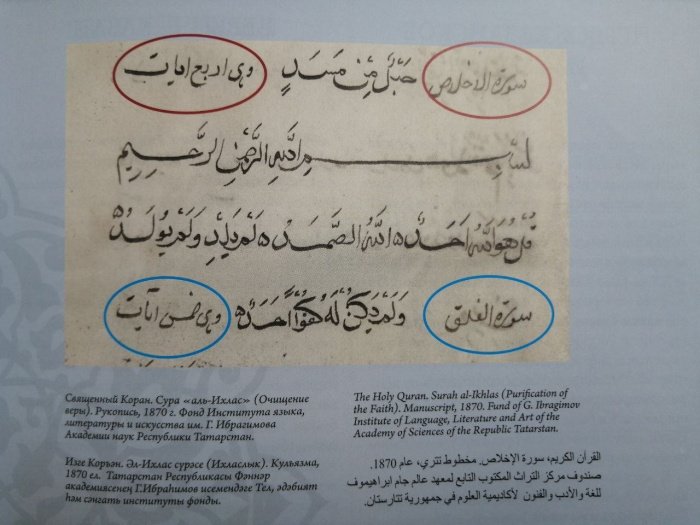 سورة الاخلاص حَبْلٌ مِّنْ مَسَدٍ وهى اربع ايات
بِسْمِ اللَّهِ الرَّحْمَنِ الرَّحِيمِ
قُلْ هُوَ اللَّهُ اَحَدٌ ه اَللَّهُ الصَّمَدُ ه لَمْ يَلِدْ وَلَمْ يُولَدْ
وَلَمْ يَكُنْ لَهُ كُفُوًا اَحَدٌ ه
سورة الفلق وهى خمس آيات
Священный Коран. Сура «аль-Ихлас» (Очищение
веры). Рукопись, 1870 г. Фонд Института языка,
литературы и искусства им. Г. Ибрагимова
Академии наук Республики Татарстан.
Изге Коръән. Әл-Ихлас сүрәсе (Ихласлык). Кулъязма,
1870 ел. Татарстан Республикасы Фәннәр
академиясенең Г.Ибраһимов исемендәге Тел, әдәбият
һәм сәнгать институты фонды.
The Holy Quran. Surah al-Ikhlas (Purification of
the Faith). Manuscript, 1870. Fund of G. Ibragimov
Institute of Language, Literature and Art of the
Academy of Sciences of the Republic Tatarstan.
القرآن الكريم، سورة الإخلاص. مخطوط تتري، عام 1870.
صندوف مركز التراث المكتوب التابع لمعهد عالم جام ابراهيموف
للغة والأدب والفنون لأكاديمية العلوم في جمهورية تتارستان.